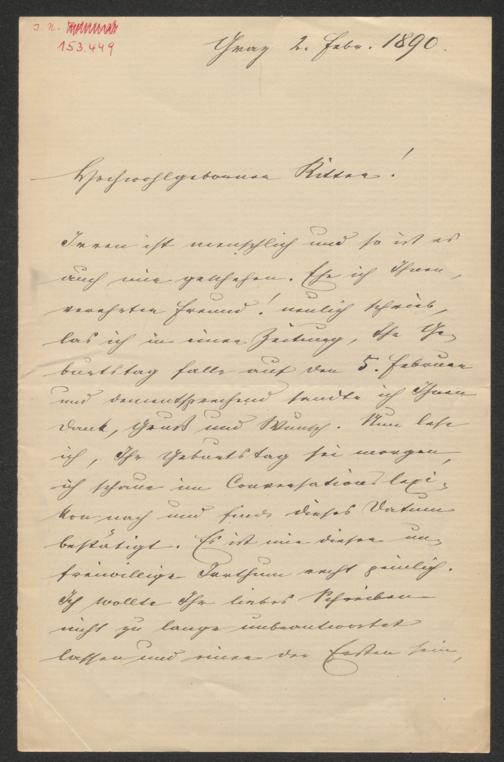 I. N.
153.449
Graz 2. Febr. 1890.
Hochwohlgeborener Ritter!
Irren ist menschlich und so ist es
auch mir geschehen. Ehe ich Ihnen,
verehrter Freund! neulich schrieb,
las ich in einer Zeitung, Ihr Ge-
burtstag falle auf den 5. Februar
und dementsprechend sandte ich Ihnen
Dank, Gruß und Wunsch. Nun lese
ich, Ihr Geburtstag sei morgen,
ich schaue im Conversationslexi-
kon nach und finde dieses Datum
bestätigt. Es ist mir dieser un-
freiwillige Irrthum recht peinlich.
Ich wollte Ihr liebes Schreiben
nicht zu lange unbeantwortet
lassen und einer der Ersten sein,